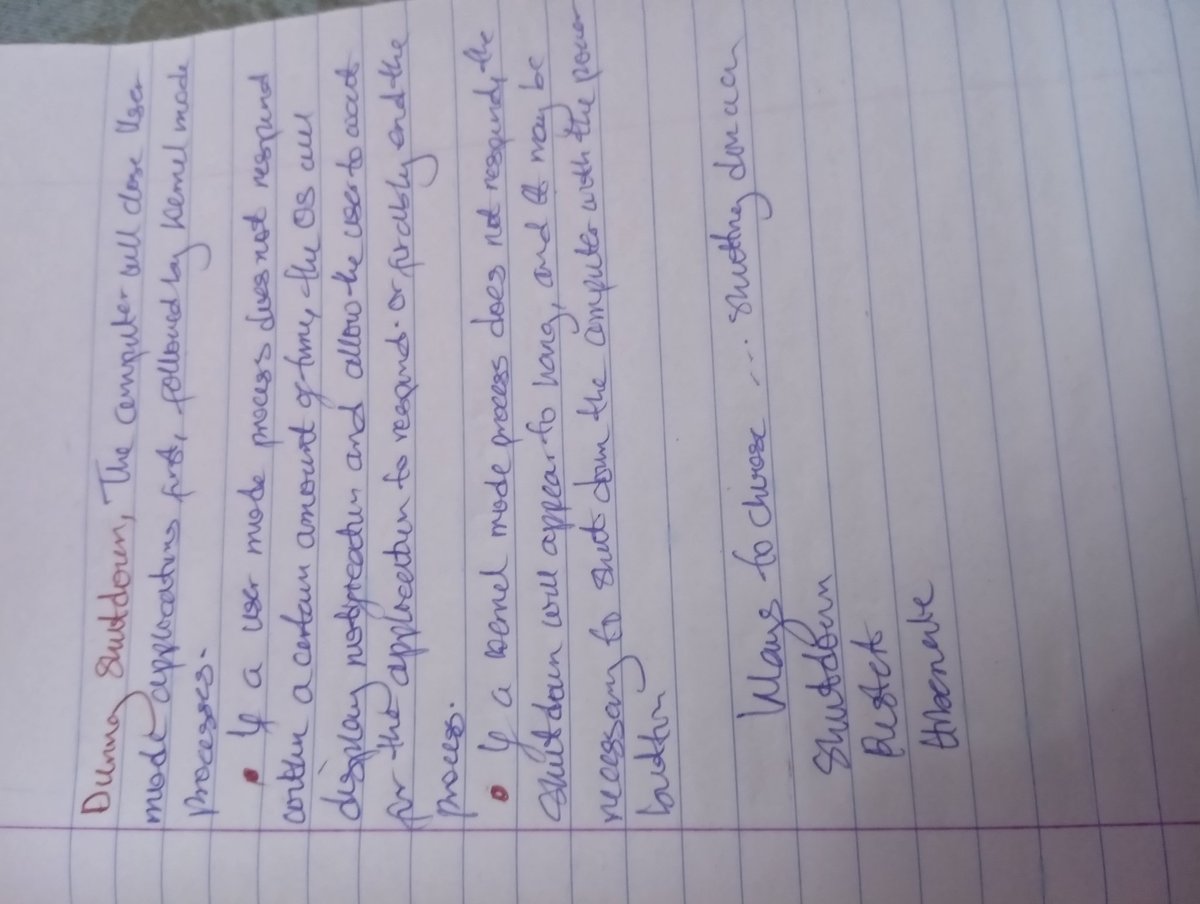 During Shutdown, The computer will close User
mode applications first, followed by Kernel mode
processes.
• If a user mode process does not respond
within a certain amount of time, the OS will
display notification and allow the user to wait
for the application to respond or forcibly end the
process.
• If a kernel mode process does not respond, the
shutdown will appear to hang, and it may be
necessary to shut down the computer with the power
button
Ways to choose ... shutting down a
Shutdown
Restart
Hibernate